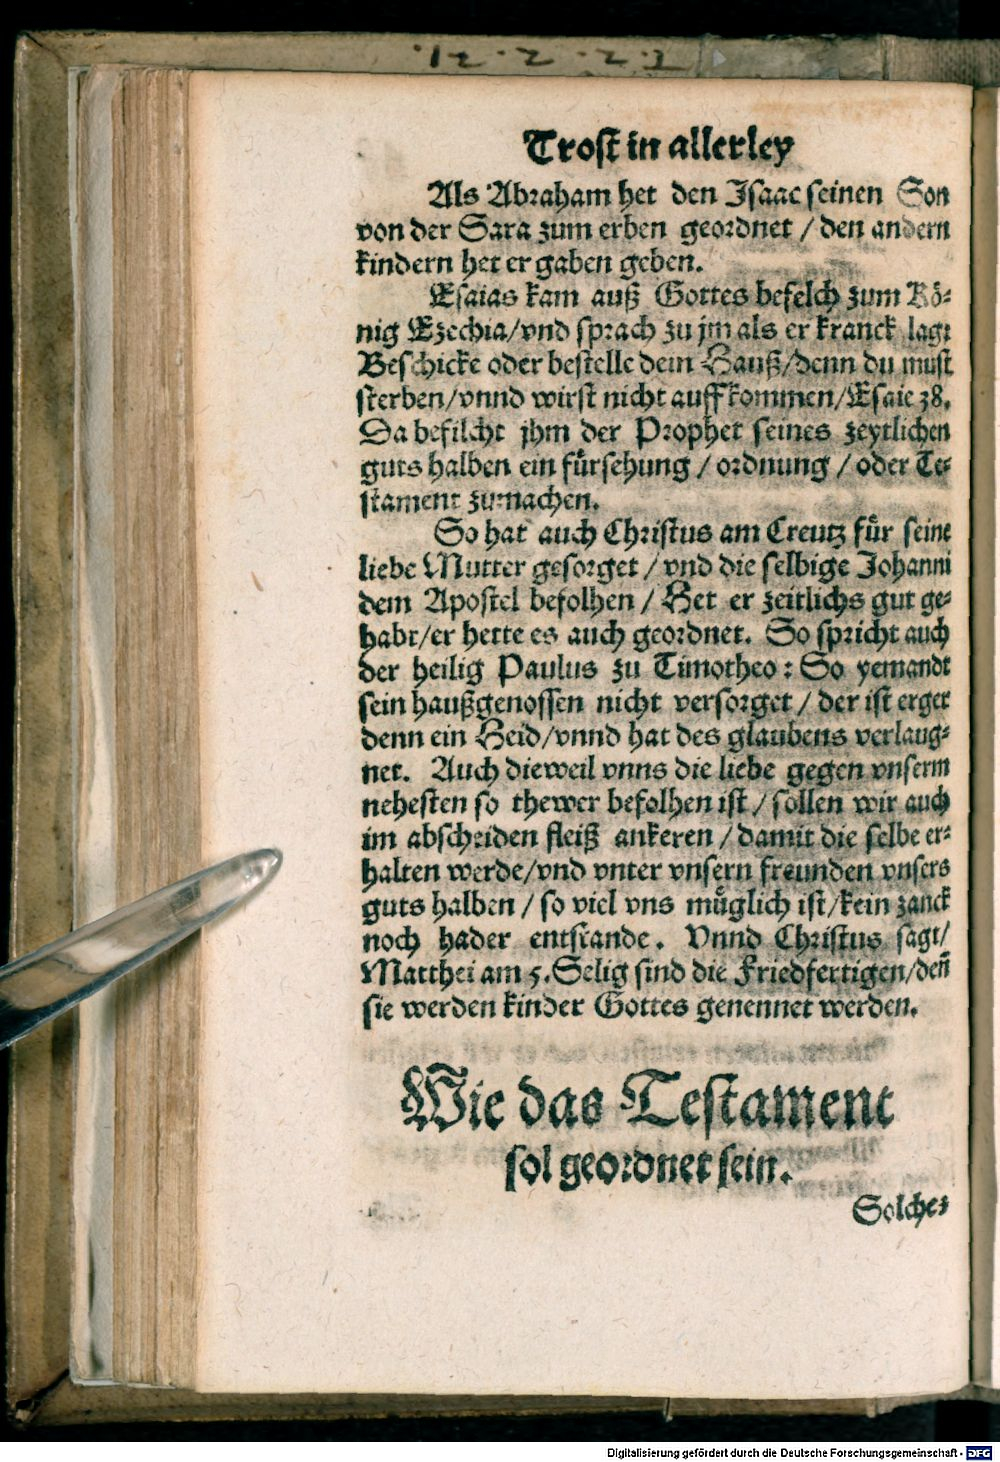 Trost in allerley
Als Abraham het den Isaac seinen Son
von der Sara zum erben geordnet / den andern
kindern het er gaben geben.
Esaias kam auß Gottes befelch zum Kö-
nig Ezechia/vnd sprach zu jm als er kranck lag:
Beschicke oder bestelle dein Hauß/denn du must
sterben/vnnd wirst nicht auffkommen/Esaie 38.
Da befilcht jhm der Prophet seines zeytlichen
guts halben ein fürsehung / ordnung / oder Te-
stament zumachen.
So hat auch Christus am Creutz für seine
liebe Mutter gesorget / vnd die selbige Johanni
dem Apostel befolhen / Het er zeitlichs gut ge-
habt/er hette es auch geordnet. So spricht auch
der heilig Paulus zu Timotheo: So yemandt
sein haußgenossen nicht versorget / der ist erger
denn ein Heid/vnnd hat des glaubens verlaug-
net. Auch dieweil vnns die liebe gegen vnserm
nehesten so thewer befolhen ist / sollen wir auch
im abscheiden fleiß ankeren / damit die selbe er-
halten werde/vnd vnter vnsern freunden vnsers
guts halben / so viel vns müglich ist/kein zanck
noch hader entstande. Vnnd Christus sagt/
Matthei am 5. Selig sind die Friedfertigen/deñ
sie werden kinder Gottes genennet werden.
Wie das Testament
sol geordnet sein.
Solche-
Digitalisierung gefördert durch die Deutsche Forschungsgemeinschaft - DFG